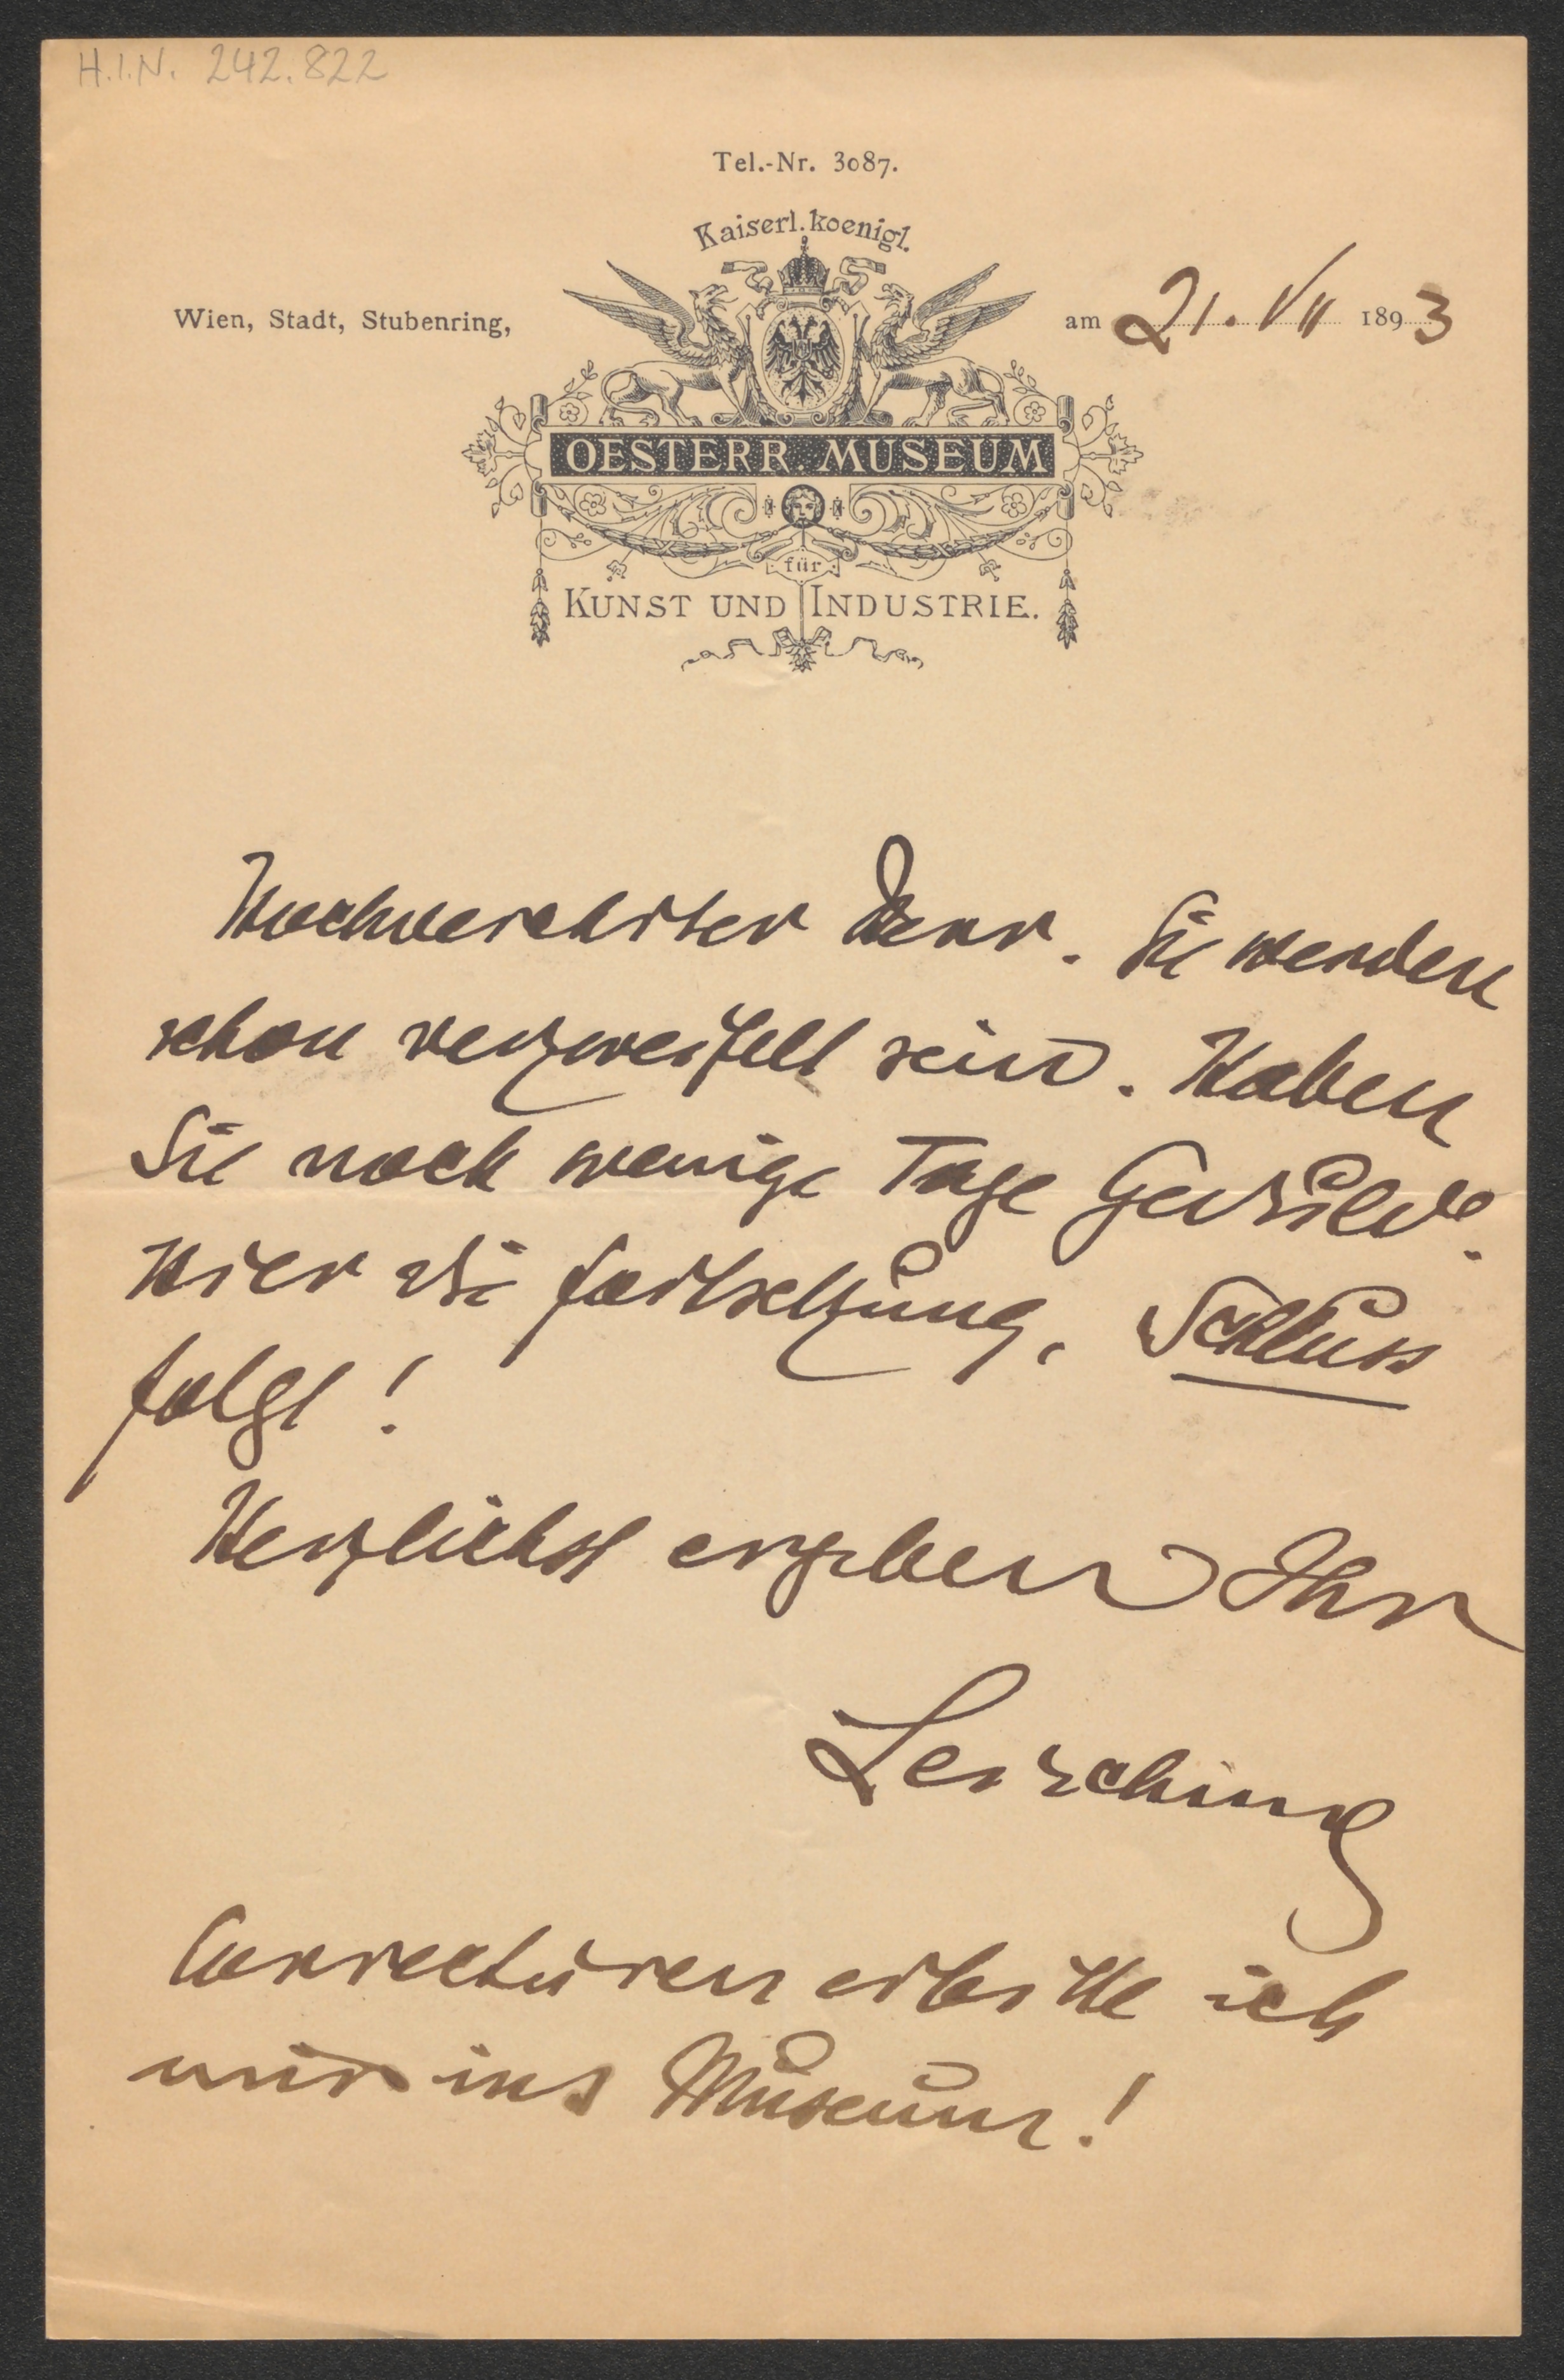 H.I.N. 242.822
Tel.-Nr. 3087.
Kaiserl. koenigl.
Wien, Stadt, Stubenring,
am 21. VII 1893
OESTERR. MUSEUM
für
KUNST UND INDUSTRIE.
Hochverehrter Herr. Sie werden
schon verzweifelt sein. Haben
Sie noch wenige Tage Geduld.
Hier die Fortsetzung. Schluss
folgt!
Herzlichst ergeben Ihr
Leisching
Correcturen erbitte ich
mir ins Museum!